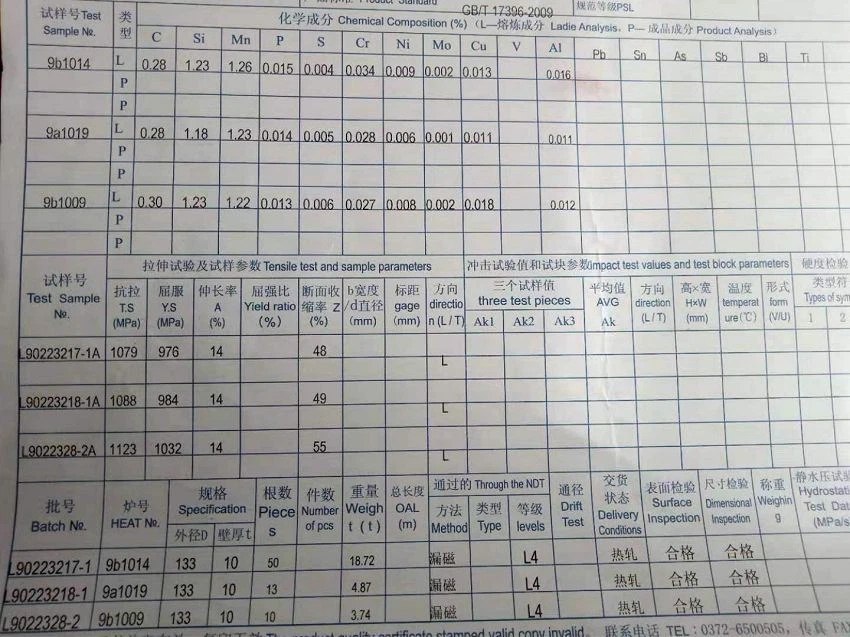 Product Standard GB/T 17396-2009 规范等级PSL
试样号Test Sample №. 类型 化学成分 Chemical Composition (%)(L—熔炼成分 Ladie Analysis, P— 成品成分 Product Analysis)
C Si Mn P S Cr Ni Mo Cu V Al Pb Sn As Sb Bi Ti
9b1014 L 0.28 1.23 1.26 0.015 0.004 0.034 0.009 0.002 0.013 0.016
P
P
9a1019 L 0.28 1.18 1.23 0.014 0.005 0.028 0.006 0.001 0.011 0.011
P
P
9b1009 L 0.30 1.23 1.22 0.013 0.006 0.027 0.008 0.002 0.018 0.012
P
P
试样号 Test Sample №. 拉伸试验及试样参数 Tensile test and sample parameters 冲击试验值和试块参数impact test values and test block parameters 硬度检验
抗拉 T.S (MPa) 屈服 Y.S (MPa) 伸长率 A (%) 屈强比 Yield ratio (%) 断面收缩率 Z (%) b宽度/d直径 (mm) 标距 gage (mm) 方向 direction (L / T) 三个试样值 three test pieces 平均值 AVG Ak 方向 direction (L / T) 高×宽 H×W (mm) 温度 temperature(℃) 形式 form (V/U) 类型符 Types of sym
Ak1 Ak2 Ak3 1 2
L90223217-1A 1079 976 14 48 L
L90223218-1A 1088 984 14 49 L
L9022328-2A 1123 1032 14 55 L
批号 Batch №. 炉号 HEAT №. 规格 Specification 根数 Pieces 件数 Number of pcs 重量 Weight (t) 总长度 OAL (m) 通过的 Through the NDT 通径 Drift Test 交货状态 Delivery Conditions 表面检验 Surface Inspection 尺寸检验 Dimensional Inspection 称重 Weighing 静水压试验 Hydrostati Test Data (MPa/s
外径D 壁厚t 方法 Method 类型 Type 等级 levels
L90223217-1 9b1014 133 10 50 18.72 漏磁 L4 热轧 合格 合格
L90223218-1 9a1019 133 10 13 4.87 漏磁 L4 热轧 合格 合格
L9022328-2 9b1009 133 10 10 3.74 漏磁 L4 热轧 合格 合格
The product quality certificate stamped valid copy invalid. 联系电话 TEL:0372-6500505, 传真 FA